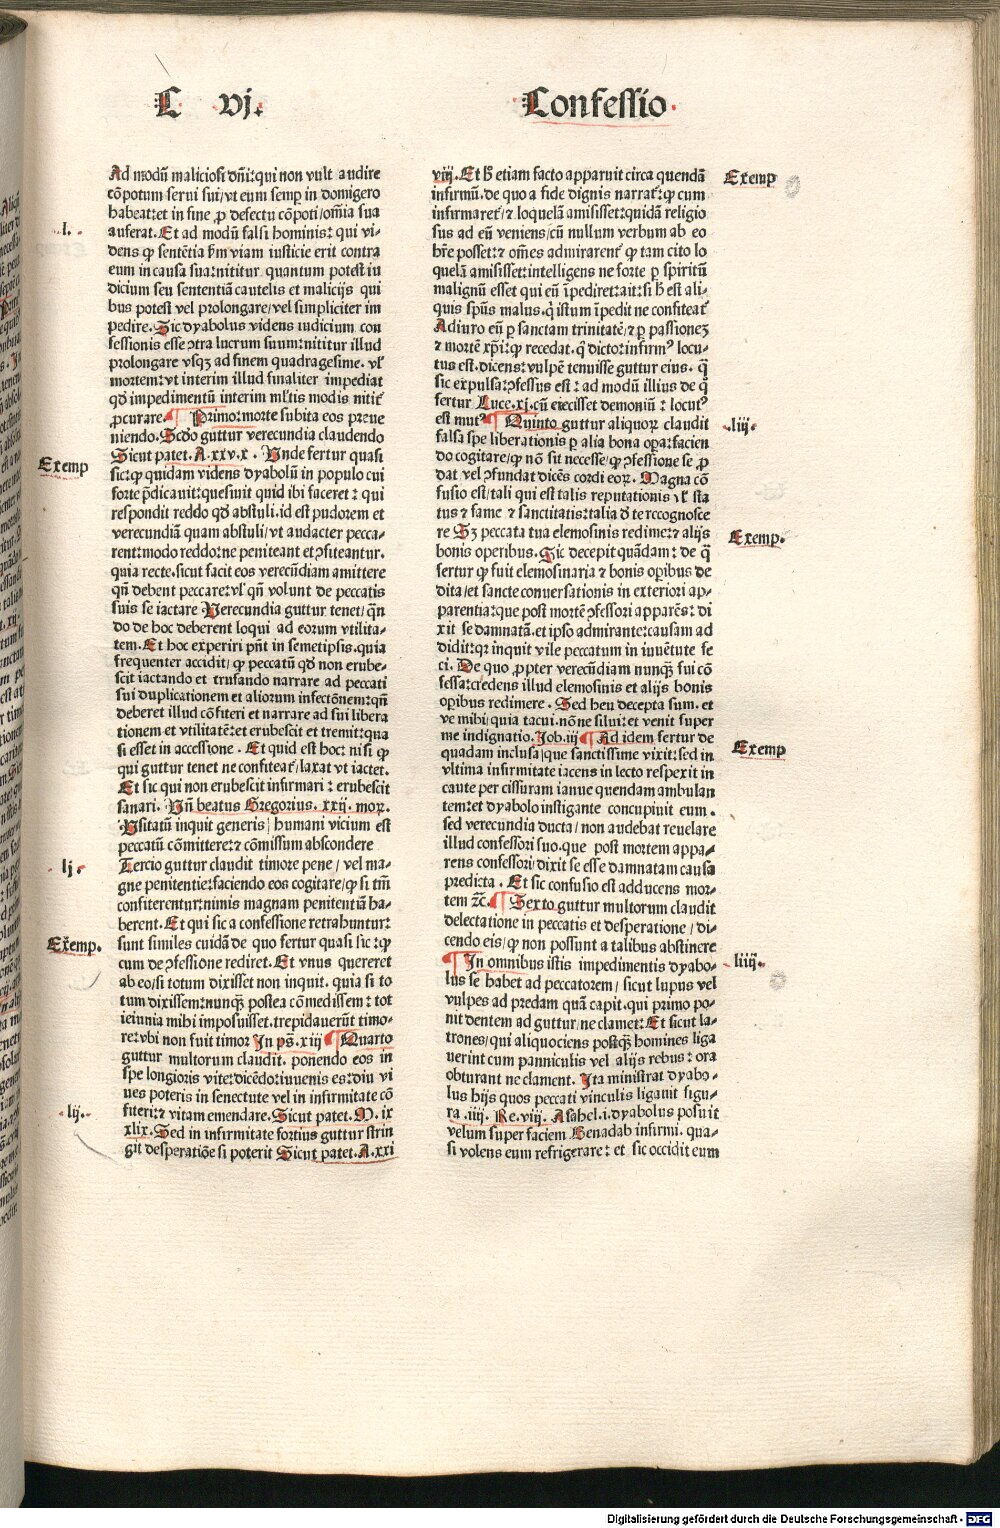 C vj.
Confessio.
Ad modū maliciosi dñi: qui non vult audire
cōpotum serui sui/ vt eum semꝑ in domigero
habeat: et in fine ꝓ defectu cōpoti/ om̄ia sua
.l. auferat. Et ad modū falsi hominis: qui vi-
dens ꝙ sentētia ꝑm viam iusticie erit contra
eum in causa sua: nititur quantum potest iu
dicium seu sententiā cautelis et malicijs qui
bus potest vel prolongare/ vel simpliciter im
pedire. Sic dyabolus videns iudicium con
fessionis esse ꝯtra lucrum suum: nititur illud
prolongare vsqꝫ ad finem quadragesime. vl̕
mortem: vt interim illud finaliter impediat
qd̕ impedimentū interim ml̕tis modis nitit̕
ꝓcurare. ¶ Primo: morte subita eos preue
niendo. Scd̕o guttur verecundia claudendo
Sicut patet. A. xxv. x. Vnde fertur quasi
Exemp sic: ꝙ quidam videns dyabolū in populo cui
forte p̄dicauit: quesiuit quid ibi faceret: qui
respondit reddo qd̕ abstuli. id est pudorem et
verecundiā quam abstuli/ vt audacter pecca-
rent: modo reddo: ne peniteant et ꝯfiteantur.
quia recte. sicut facit eos verecūdiam amittere
qn̄ debent peccare: vl̕ qn̄ volunt de peccatis
suis se iactare Verecundia guttur tenet/ qn̄
do de hoc deberent loqui ad eorum vtilita-
tem. Et hoc experiri pn̄t in semetipsis. quia
frequenter accidit/ ꝙ peccatū qd̕ non erube-
scit iactando et trufando narrare ad peccati
sui duplicationem et aliorum infectōnem: qn̄
deberet illud cōfiteri et narrare ad sui libera
tionem et vtilitatē: et erubescit et tremit: qua
si esset in accessione. Et quid est hoc: nisi ꝙ
qui guttur tenet ne confiteat̕/ laxat vt iactet.
Et sic qui non erubescit infirmari: erubescit
sanari. Vn̄ beatus Gregorius. xxij. moꝝ.
Vsitatū inquit generis/ humani vicium est
peccatū cōmittere: ⁊ cōmissum abscondere
.lj. Tercio guttur claudit timore pene/ vel ma-
gne penitentie: faciendo eos cogitare/ ꝙ si tm̄
confiterentur: nimis magnam penitentiā ha-
berent. Et qui sic a confessione retrahuntur:
Exemp. sunt similes cuidā de quo fertur quasi sic: ꝙ
cum de ꝯfessione rediret. Et vnus quereret
ab eo/ si totum dixisset non inquit. quia si to
tum dixissem: nunqꝫ postea cōmedissem: tot
ieiunia mihi imposuisset. trepidauerūt timo-
re: vbi non fuit timor In ps̄. xiij ¶ Quarto
guttur multorum claudit. ponendo eos in
spe longioris vite: dicēdo: iuuenis es: diu vi
ues poteris in senectute vel in infirmitate cō
.lij. fiteri: ⁊ vitam emendare. Sicut patet. M. ix
xlix. Sed in infirmitate fortius guttur strin
git desperatiōe si poterit Sicut patet. A. xxi
viij. Et h̕ etiam facto apparuit circa quendā Exemp
infirmū. de quo a fide dignis narrat̕: ꝙ cum
infirmaret̕/ ⁊ loquelā amisisset: quidā religio
sus ad eū veniens/ cū nullum verbum ab eo
hr̄e posset: ⁊ om̄es admirarent̕ ꝙ tam cito lo
quelā amisisset: intelligens ne forte ꝑ spiritū
malignū esset qui eū īpediret: ait: si h̕ est ali-
quis spūs malus. q̕ istum īpedit ne confiteat̕
Adiuro eū ꝑ sanctam trinitatē/ ⁊ ꝑ passionez
⁊ mortē xp̄i: ꝙ recedat. q̄ dicto: infirmꝰ locu-
tus est. dicens: vulpē tenuisse guttur eius. q̄
sic expulsa: ꝯfessus est: ad modū illius de q̄
fertur Luce. xj. cū eiecisset demoniū: locutꝰ
est mutꝰ ¶ Quinto guttur aliquoꝝ claudit .liij.
falsa spe liberationis ꝑ alia bona oꝑa: facien
do cogitare/ ꝙ nō sit necesse/ ꝙ ꝯfessione se ꝓ
dat vel ꝯfundat dicēs cordi eoꝝ. Magna cō
fusio est/ tali qui est talis reputationis vl̕ sta
tus ⁊ fame ⁊ sanctitatis: talia d̕ te recognosce
re Sꝫ peccata tua elemosinis redime: ⁊ alijs Exemp.
bonis operibus. Sic decepit quādam: de q̄
fertur ꝙ fuit elemosinaria ⁊ bonis oꝑibus de
dita/ et sancte conuersationis in exteriori ap-
parentia: que post mortē ꝯfessori apparēs: di
xit se damnatā. et ipso admirante: causam ad
didit: qꝛ inquit vile peccatum in iuuētute fe
ci. De quo ꝓpter verecūdiam nunqꝫ fui cō
fessa: credens illud elemosinis et alijs bonis
oꝑibus redimere. Sed heu decepta sum. et
ve mihi/ quia tacui. nōne silui: et venit super
me indignatio. Job. iij ¶ Ad idem fertur de
quadam inclusa/ que sanctissime vixit: sed in Exemp
vltima infirmitate iacens in lecto respexit in
caute per cissuram ianue quendam ambulan
tem: et dyabolo instigante concupiuit eum.
sed verecundia ducta/ non audebat reuelare
illud confessori suo. que post mortem appa-
rens confessori/ dixit se esse damnatam causa
predicta. Et sic confusio est adducens mor-
tem ⁊c̄. ¶ Sexto guttur multorum claudit
delectatione in peccatis et desperatione/ di-
cendo eis/ ꝙ non possunt a talibus abstinere
¶ In omnibus istis impedimentis dyabo- .liiij.
lus se habet ad peccatorem/ sicut lupus vel
vulpes ad predam quā capit. qui primo po-
nit dentem ad guttur/ ne clamet: Et sicut la-
trones/ qui aliquociens postqꝫ homines liga
uerint cum panniculis vel alijs rebus: ora
obturant ne clament. Ita ministrat dyabo-
lus hijs quos peccati vinculis ligauit figu-
ra .iiij. Re. viij. Asahel. i. dyabolus posuit
velum super faciem Benadab infirmi. qua-
si volens eum refrigerare: et sic occidit eum
Digitalisierung gefördert durch die Deutsche Forschungsgemeinschaft - DFG